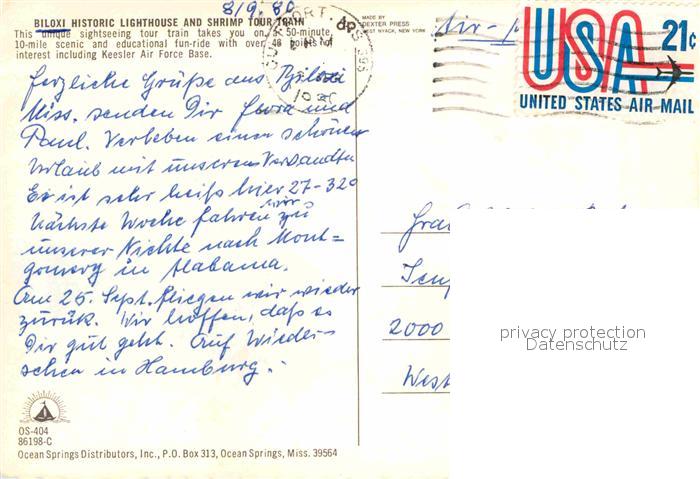 8/9. 80
BILOXI HISTORIC LIGHTHOUSE AND SHRIMP TOUR TRAIN
This unique sightseeing tour train takes you on a 50-minute,
10-mile scenic and educational fun-ride with over 48 points of
interest including Keesler Air Force Base.
MADE BY
DEXTER PRESS
WEST NYACK, NEW YORK
GULFPORT, MS 395
Air-
USA 21c
UNITED STATES AIR MAIL
Herzliche Grüße aus Biloxi
Miss. senden Dir und
Paul. Verleben einen schönen
Urlaub mit unseren Verwandten
Es ist sehr heiß hier 27-32°
Nächste Woche fahren wir zu
unserer Nichte nach Mont=
gomery in Alabama.
Am 25. Sept. fliegen wir wieder
zurück. Wir hoffen, daß es
Dir gut geht. Auf Wieder-
sehen in Hamburg.
2000
West
privacy protection
Datenschutz
OS-404
86198-C
Ocean Springs Distributors, Inc., P.O. Box 313, Ocean Springs, Miss. 39564